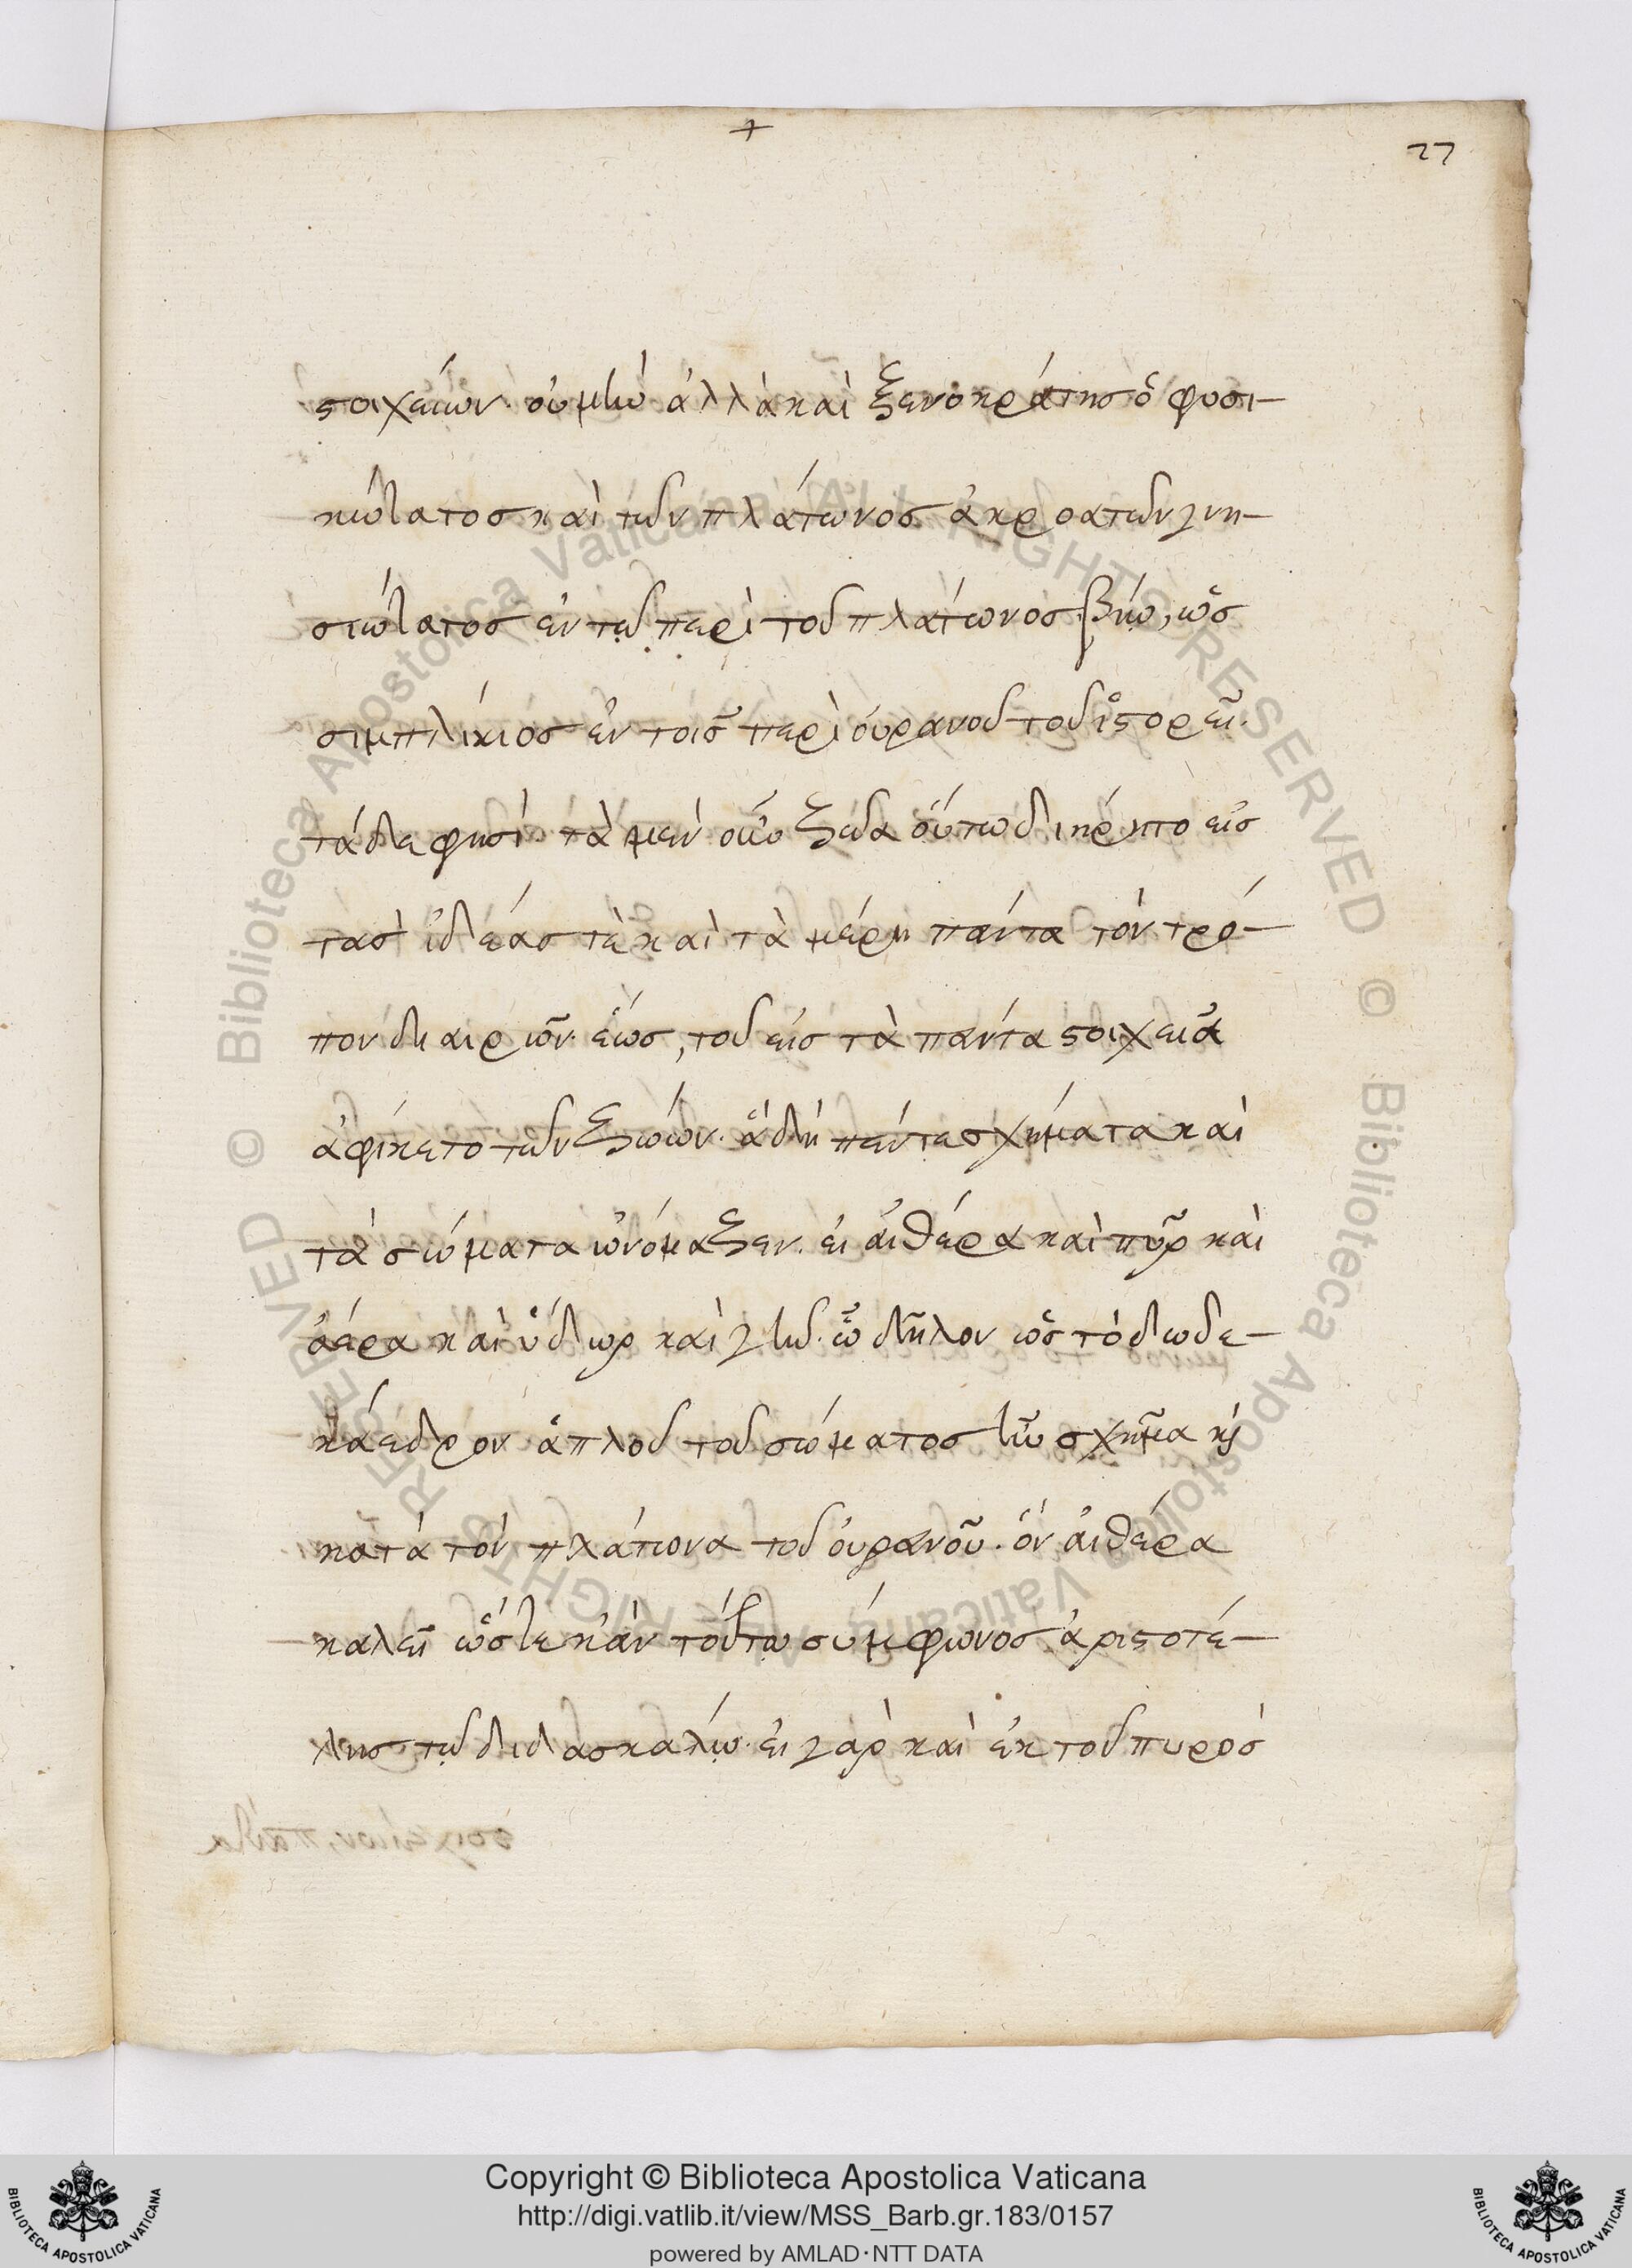 27
στοιχείων· οὐ μὴν ἀλλὰ καὶ ξενοκράτης ὁ φυσι-
κώτατος καὶ τῶν πλάτωνος ἀκροατῶν γνη-
σιώτατος ἐν τῷ περὶ τοῦ πλάτωνος βίῳ, ὡς
σιμπλίκιος ἐν τοῖς περὶ οὐρανοῦ τοῦ ἱστορεῖ·
τάδε φησί· τὰ μὲν οὖν ζῶα οὕτω διῄρητο εἰς
τὰς ἰδέας τὲ καὶ τὰ μέρη πάντα τὸν τρό-
πον διαιρῶν· ἕως, τοῦ εἰς τὰ πάντα στοιχεῖα
ἀφίκετο τῶν ζώων· ἃ δὴ πέντε σχήματα καὶ
τὰ σώματα ὠνόμαζεν· εἰ αἰθέρα καὶ πῦρ καὶ
ἀέρα καὶ ὕδωρ καὶ γῆν· ὧ δῆλον ὡς τὸ δωδε-
κάεδρον ἁπλοῦ τοῦ σώματος ἦν σχῆμα κὶ
κατὰ τὸν πλάτωνα τοῦ οὐρανοῦ· ὃν αἰθέρα
καλεῖ ὥστε κἀν τούτῳ σύμφωνος ἀριστοτέ-
λης τῷ διδασκάλῳ· εἰ γὰρ καὶ ἐκ τοῦ πυρὸς
© Biblioteca Apostolica Vaticana ALL RIGHTS RESERVED © Biblioteca Apostolica Vaticana ALL RIGHTS RESERVED
Copyright © Biblioteca Apostolica Vaticana
http://digi.vatlib.it/view/MSS_Barb.gr.183/0157
powered by AMLAD·NTT DATA
BIBLIOTECA APOSTOLICA VATICANA
BIBLIOTECA APOSTOLICA VATICANA